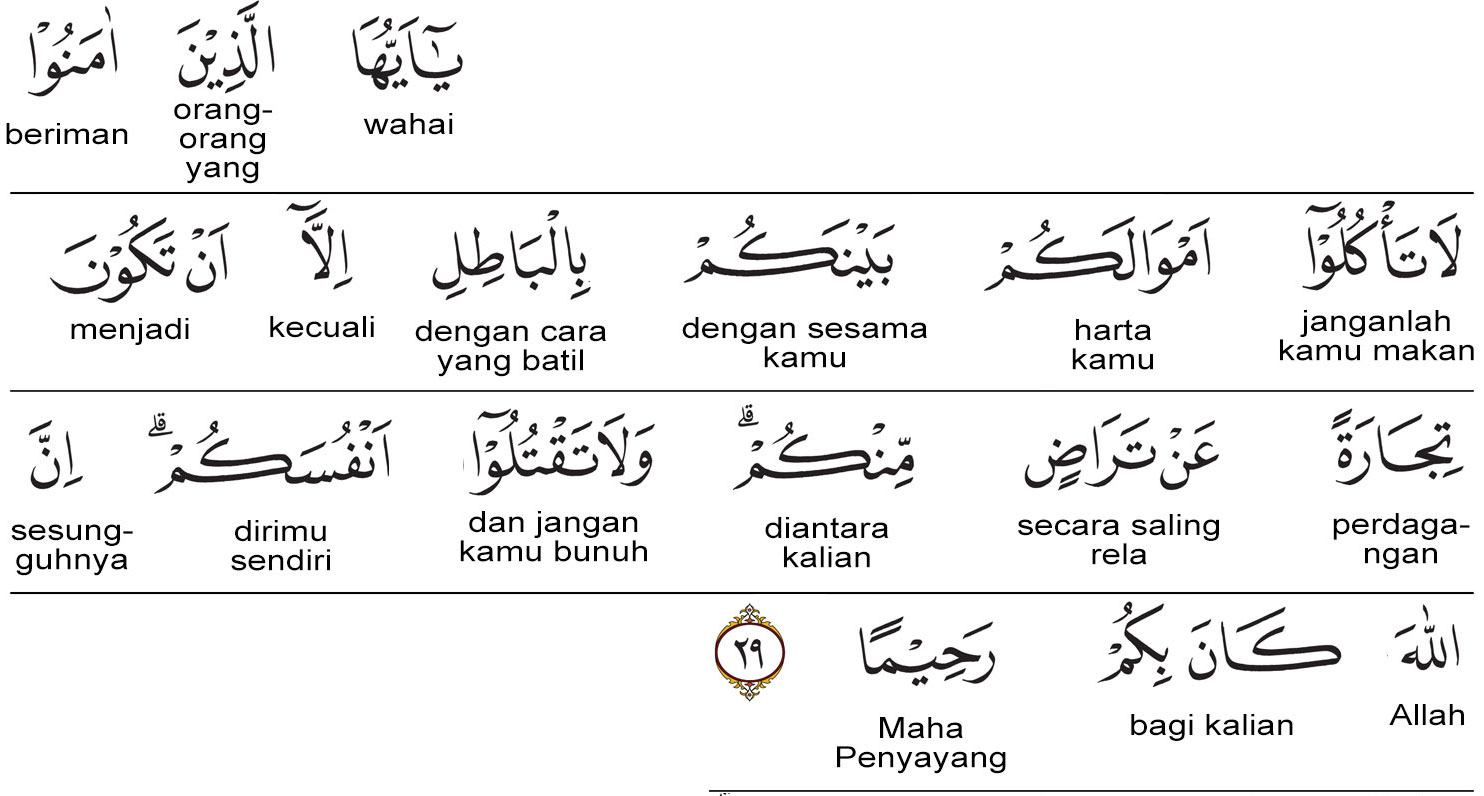 يٰٓاَيُّهَا الَّذِيْنَ اٰمَنُوْا
wahai orang-orang yang beriman
لَا تَأْكُلُوْٓا اَمْوَالَكُمْ بَيْنَكُمْ بِالْبَاطِلِ اِلَّآ اَنْ تَكُوْنَ
janganlah kamu makan harta kamu dengan sesama kamu dengan cara yang batil kecuali menjadi
تِجَارَةً عَنْ تَرَاضٍ مِّنْكُمْ ۗ وَلَا تَقْتُلُوْٓا اَنْفُسَكُمْ ۗ اِنَّ
perdaga-ngan secara saling rela diantara kalian dan jangan kamu bunuh dirimu sendiri sesung-guhnya
اللّٰهَ كَانَ بِكُمْ رَحِيْمًا ٢٩
Allah bagi kalian Maha Penyayang